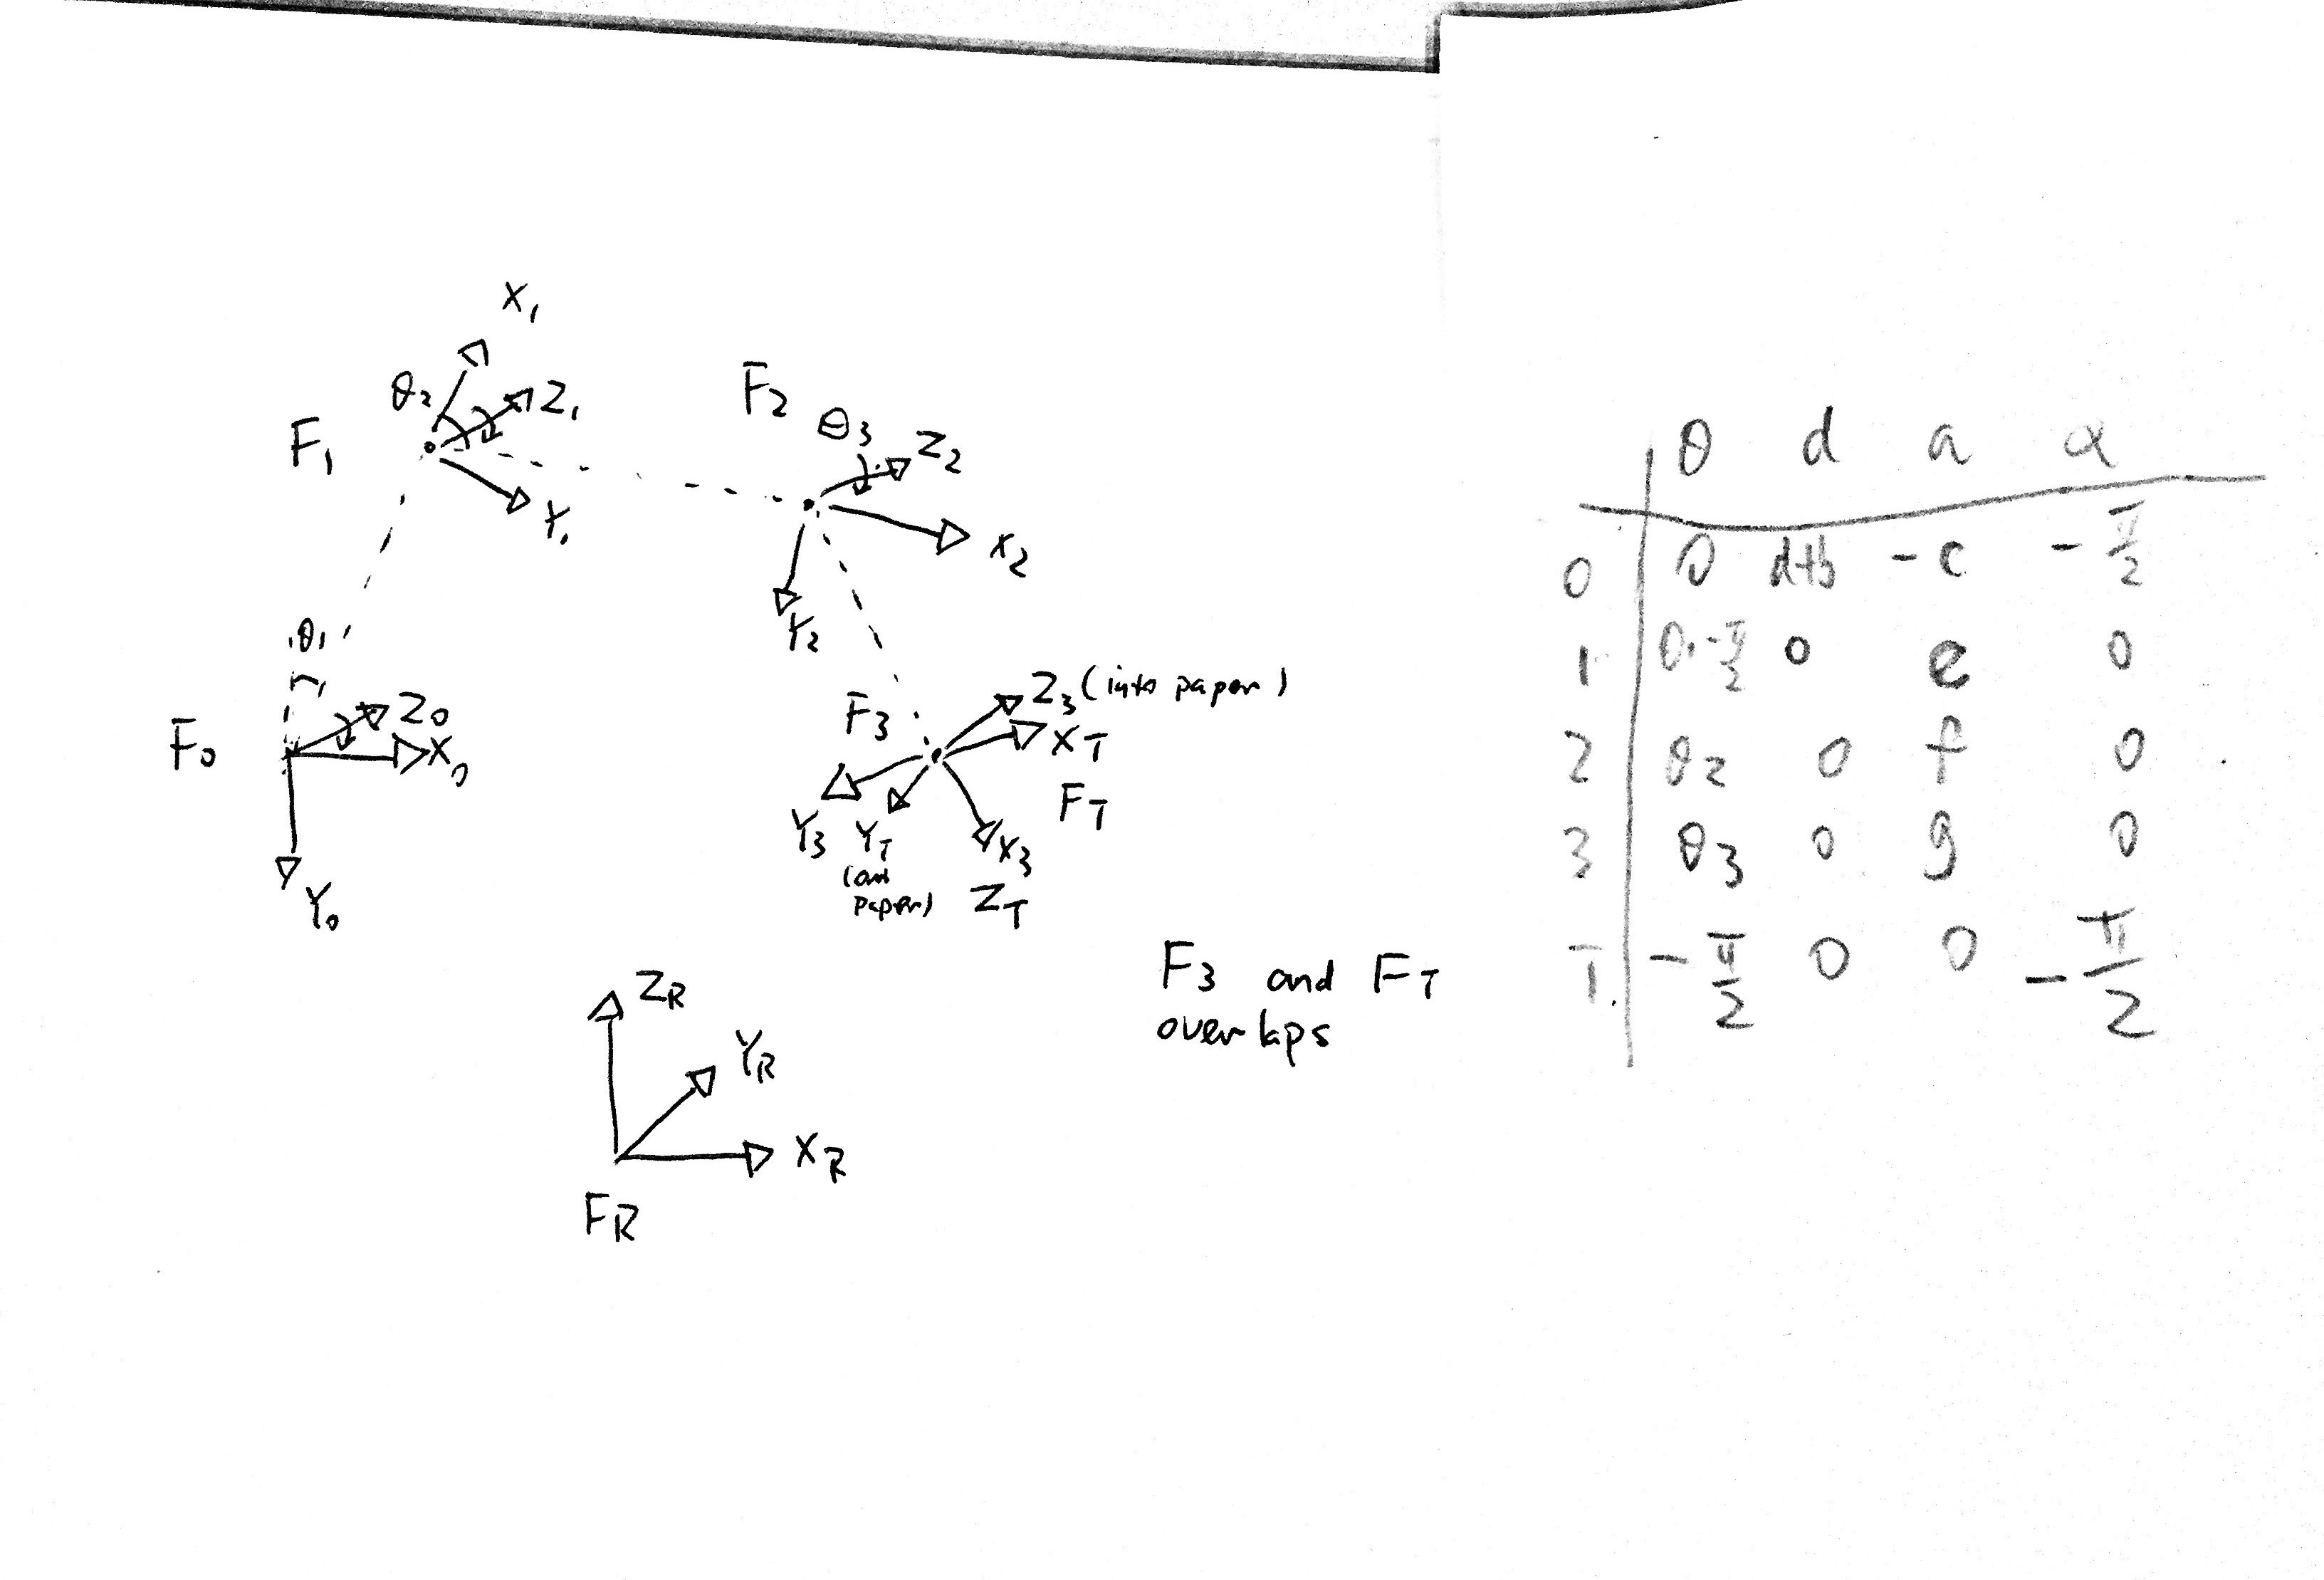 X₁
θ₂
Z₁
F₁
Y₁
F₂
θ₃
Z₂
X₂
Y₂
θ₁
F₀
Z₀
X₀
Y₀
F₃
Z₃ (into paper)
X_T
F_T
Y₃
Y_T
paper)
X₃
Z_T
F₃ and F_T
overlaps
Z_R
Y_R
X_R
F_R
θ d a α
0 0 d+b -c -π/2
1 θ₁-π/2 0 e 0
2 θ₂ 0 f 0
3 θ₃ 0 g 0
T -π/2 0 0 -π/2